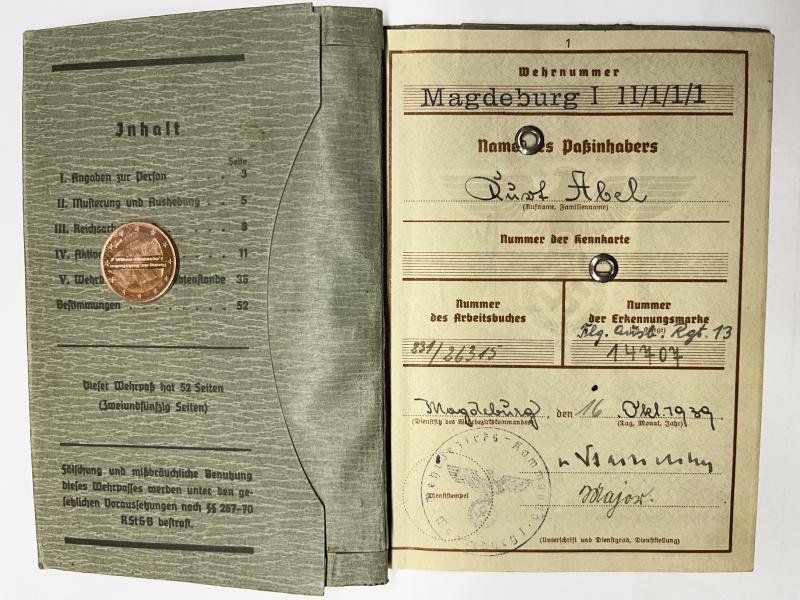 Inhalt
Seite
I. Angaben zur Person . . 3
II. Musterung und Aushebung . . 5
III. Reichsarb 8
IV. Aktiv 11
V. Wehrd htenstande 36
Bestimmungen . . . . . . . 52
Dieser Wehrpaß hat 52 Seiten
(Zweiundfünfzig Seiten)
Fälschung und mißbräuchliche Benutzung
dieses Wehrpasses werden unter den ge-
setzlichen Voraussetzungen nach §§ 267-70
RStGB bestraft.
1
Wehrnummer
Magdeburg I 11/1/1/1
Name des Paßinhabers
Kurt Abel
(Rufname, Familienname)
Nummer der Kennkarte
Nummer
des Arbeitsbuches
231/26315
Nummer
der Erkennungsmarke
Flg. Ausb. Rgt. 13
14707
Magdeburg, den 16. Okt. 1939
(Dienstsitz des Wehrbezirkskommandos) (Tag, Monat, Jahr)
Dienststempel
Major.
(Unterschrift und Dienstgrad, Dienststellung)